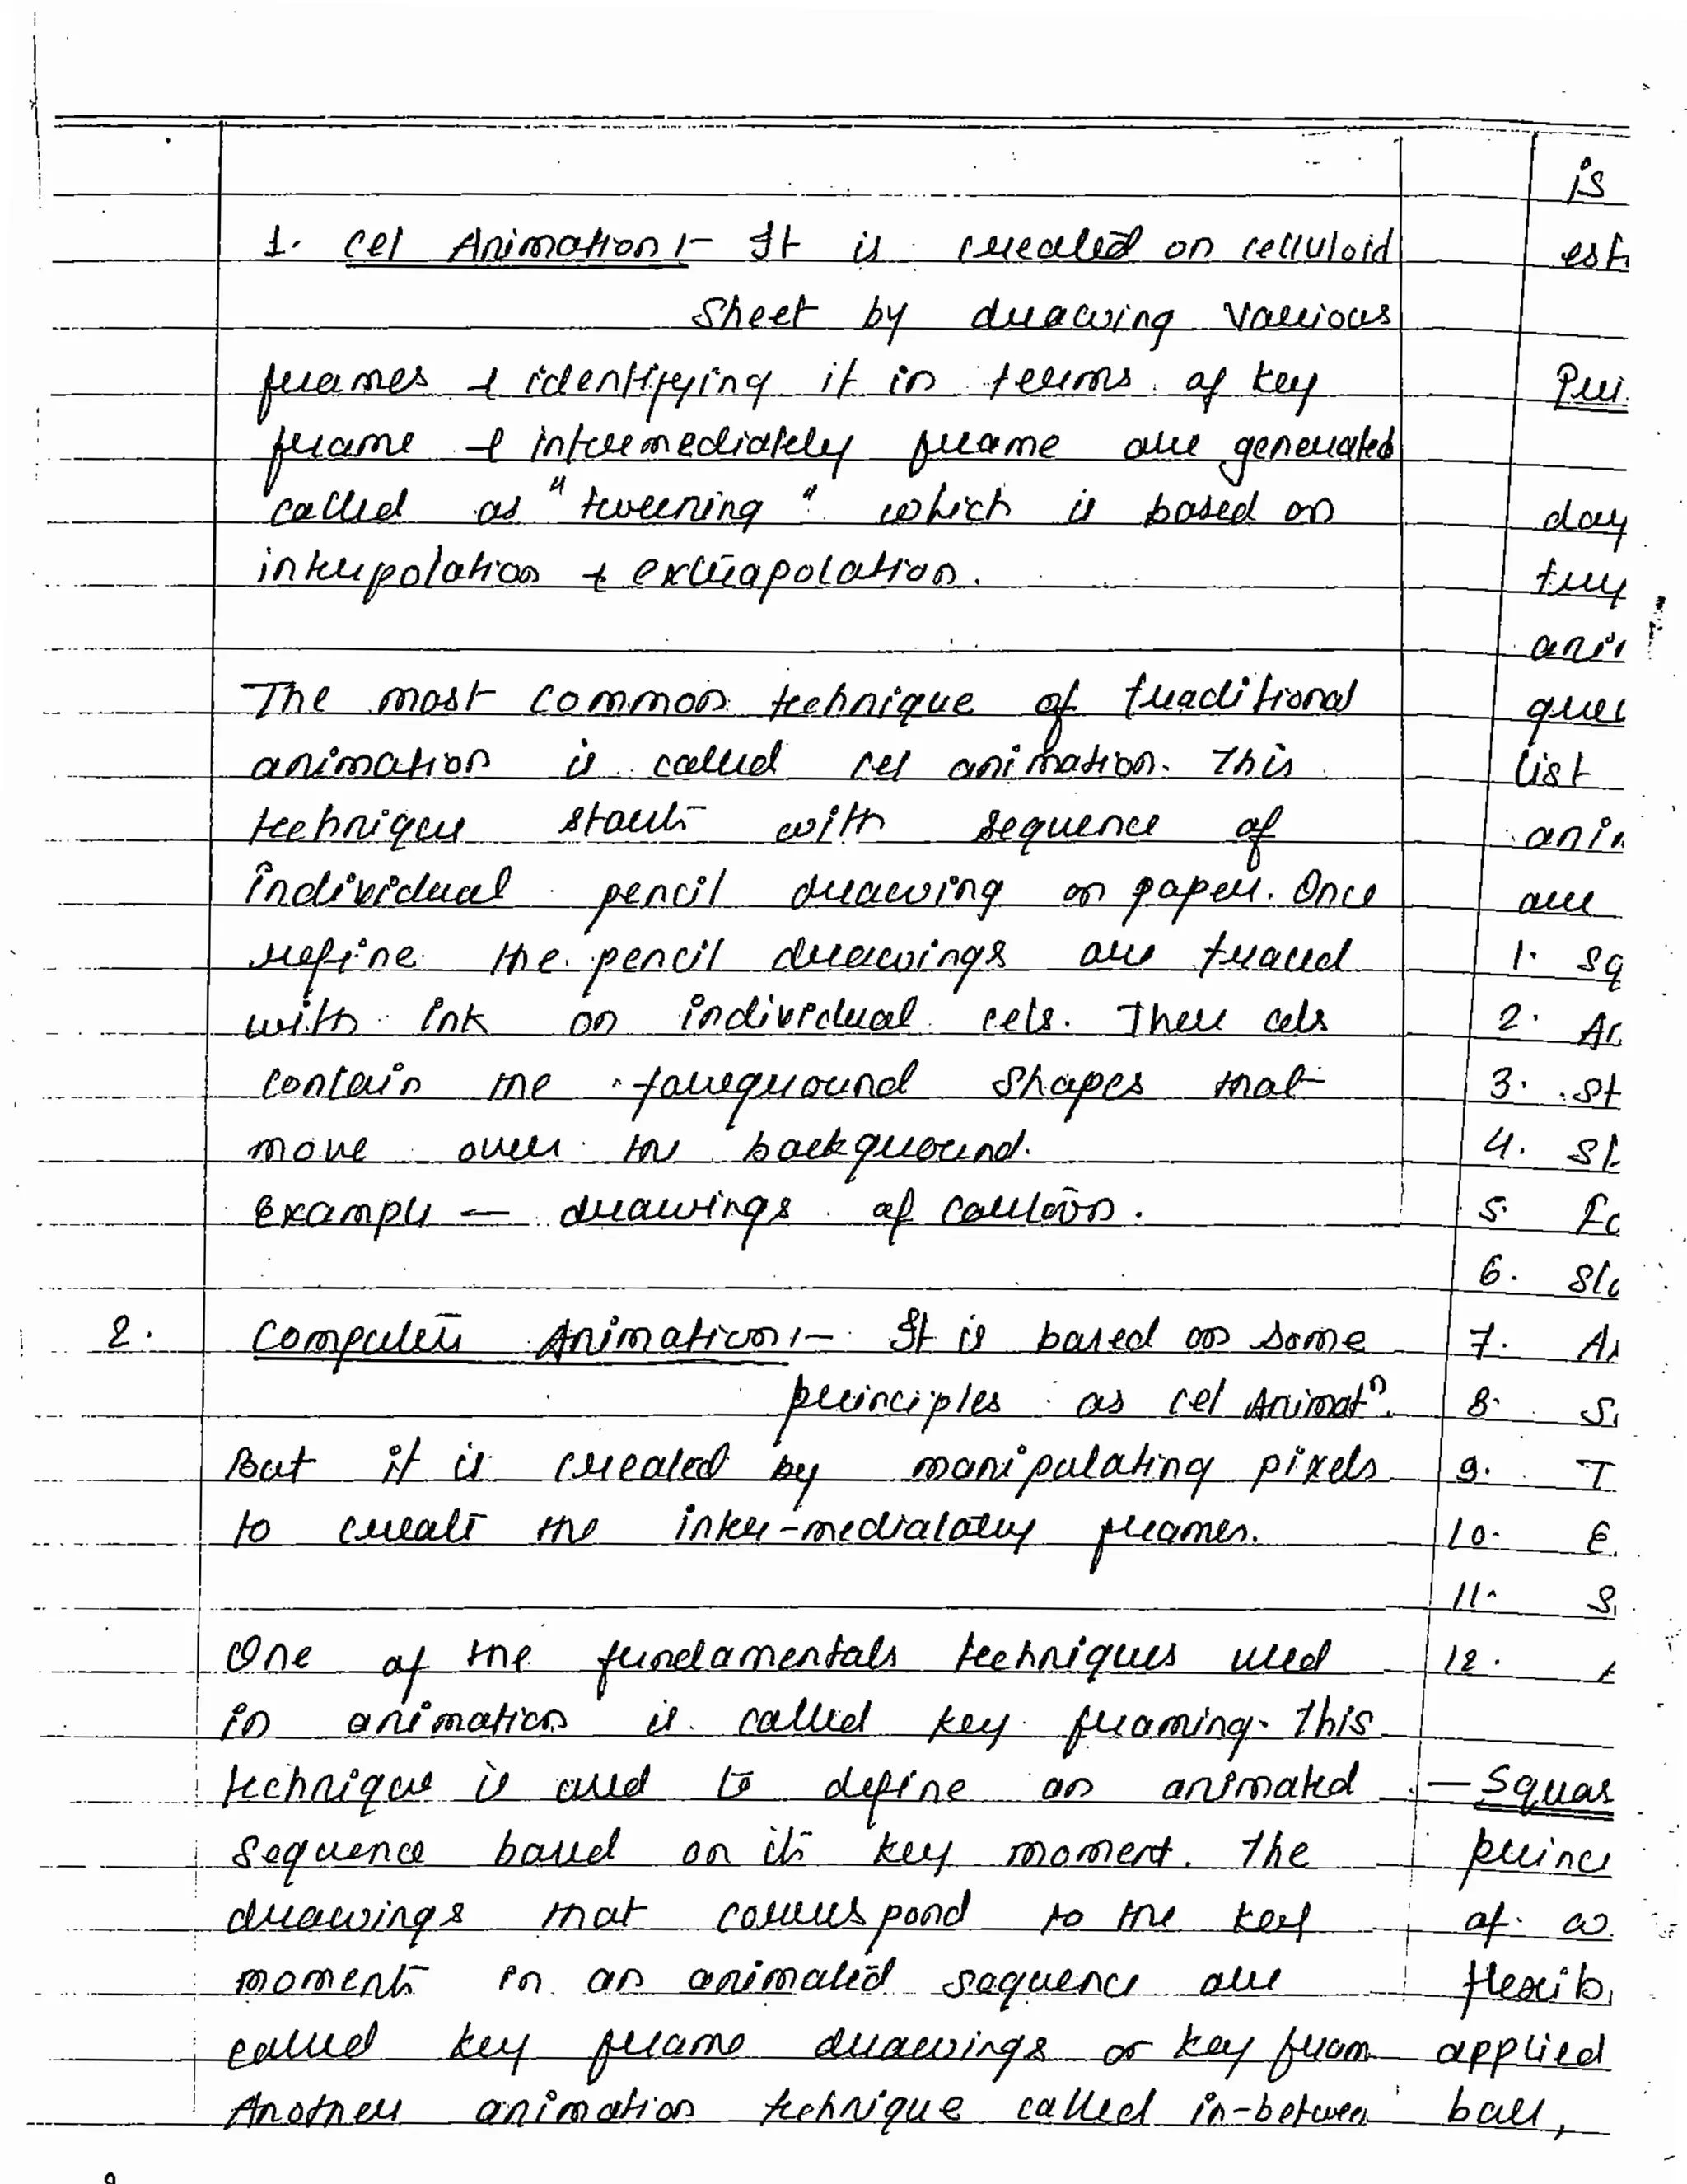 1. Cel Animation :- It is created on celluloid
Sheet by drawing Various
frames & identifying it in terms of key
frame & intermediately frame are generated
called as "tweening" which is based on
interpolation & extrapolation.
The most common technique of traditional
animation is called cel animation. This
technique starts with sequence of
individual pencil drawing on paper. Once
refine the pencil drawings are traced
with ink on individual cels. These cels
contain the foreground shapes that
move over the background.
Example — drawings of cartoon.
2. Computer Animation :- It is based on some
principles as cel Animatⁿ.
But it is created by manipulating pixels
to create the inter-mediatatery frames.
One of the fundamentals techniques used
in animation is called key framing. This
technique is used to define an animated
Sequence based on its key moment. The
drawings that correspond to the key
moments in an animated sequence are
called key frame drawings or key fram
Another animation technique called in-betwee
is
est
Pri
day
try
ani
que
list
anim
are
1. Sq
2. Ar
3. St
4. St
5. Fo
6. Slo
7. A
8. S
9. T
10. E
11. S
12.
— Squas
princi
of w
flexib
applied
ball,